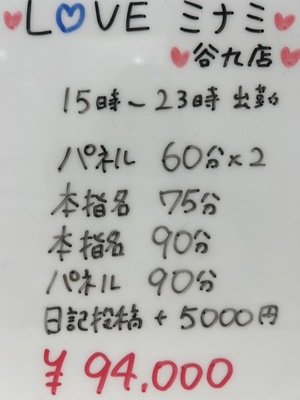 LOVE ミナミ
谷九店
15時〜23時 出勤
パネル 60分×2
本指名 75分
本指名 90分
パネル 90分
日記投稿 + 5000円
¥94.000